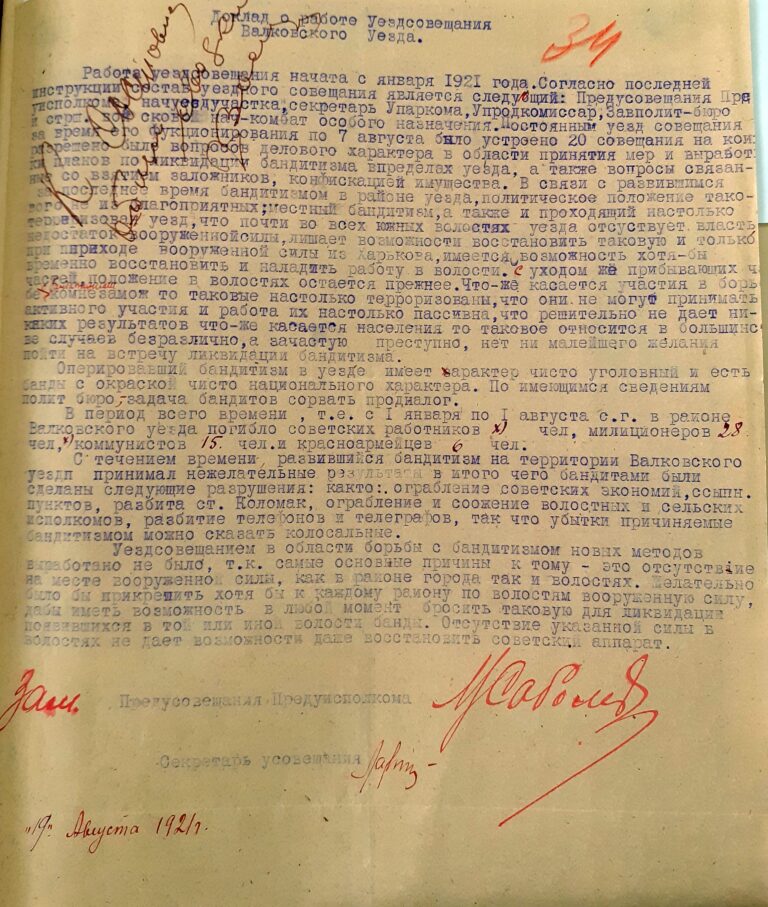 Доклад о работе Уездсовещания
Валковского Уезда.
34
Работа уездсовещания начата с января 1921 года. Согласно последней
инструкции состав уездного совещания является следующий: Предусовещания Пре
уисполкома, начуездучастка, секретарь Упаркома, Упродкомиссар, Завполит-бюро
комбат особого назначения. Постоянным уезд совещания
за время его фукционирования по 7 августа было устроено 20 совещания на кои
разрешено было вопросов делового характера в области принятия мер и выработ
ки планов по ликвидации бандитизма впределах уезда, а также вопросы связан-
ные со взятием заложников, конфискацией имущества. В связи с развившимся
за последнее время бандитизмом в районе уезда, политическое положение тако-
вого не из благоприятных; местный бандитизм, а также и проходящий настолько
терраризовал уезд, что почти во всех южных волостях уезда отсуствует власть
недостаток вооруженнойсилы, лишает возможности восстановить таковую и только
при приходе вооруженной силы из Харькова, имеется возможность хотя-бы
временно восстановить и наладить работу в волости. С уходом же прибывающих ч
частей положение в волостях остается прежнее. Что-же касается участия в борь
бе комнезамож то таковые настолько терроризованы, что они не могут принимать
активного участия и работа их настолько пассивна, что решительно не дает ни-
каких результатов что-же касается населения то таковое относится в большинс
ве случаев безразлично, а зачастую преступно, нет ни малейшего желания
пойти на встречу ликвидации бандитизма.
Оперировавший бандитизм в уезде имеет характер чисто уголовный и есть
банды с окраской чисто национального характера. По имеющимся сведениям
полит бюро, задача бандитов сорвать продналог.
В период всего времени, т.е. с I января по I августа с.г. в районе
Валковского уезда погибло советских работников х) чел, милиционеров 28
чел, х) коммунистов 15. чел. и красноармейцев 6 чел.
С течением времени, развившийся бандитизм на территории Валковского
уездп принимал нежелательные результаты в итого чего бандитами были
сделаны следующие разрушения: както:. ограбление советских экономий, ссыпн.
пунктов, разбита ст. Коломак, ограбление и соожение волостных и сельских
исполкомов, разбитие телефонов и телеграфов, так что убытки причиняемые
бандитизмом можно сказать колосальные.
Уездсовешанием в области борьбы с бандитизмом новых методов
выработано не было, т.к. самые основные причины к тому - это отсутствие
на месте вооруженной силы, как в районе города так и волостях. Желательно
было бы прикрепить хотя бы к каждому району по волостям вооруженную силу,
дабы иметь возможность в любой момент бросить таковую для ликвидации
появившихся в той или иной волости банды. Отсутствие указанной силы в
волостях не дает возможности даже восстановить советский аппарат.
Зам. Предусовещания Предуисполкома МСоболев
Секретарь усовещания
"19" Августа 1921г.